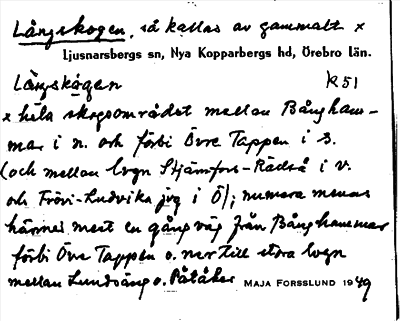 Långskogen, så kallas av gammalt x
Ljusnarsbergs sn, Nya Kopparbergs hd, Örebro län.
Långskogen R51
x hela skogsområdet mellan Bångham-
mar i n. och förbi Övre Tappen i s.
(och mellan lvgn Stjärnfors-Rådså i v.
och Frövi-Ludvika jvg i Ö); numera menas
härmed mest en gångväg från Bånghammar
förbi Övre Tappen o. ner till stora lvgn
mellan Lundsäng o. Pålåker MAJA FORSSLUND 1949